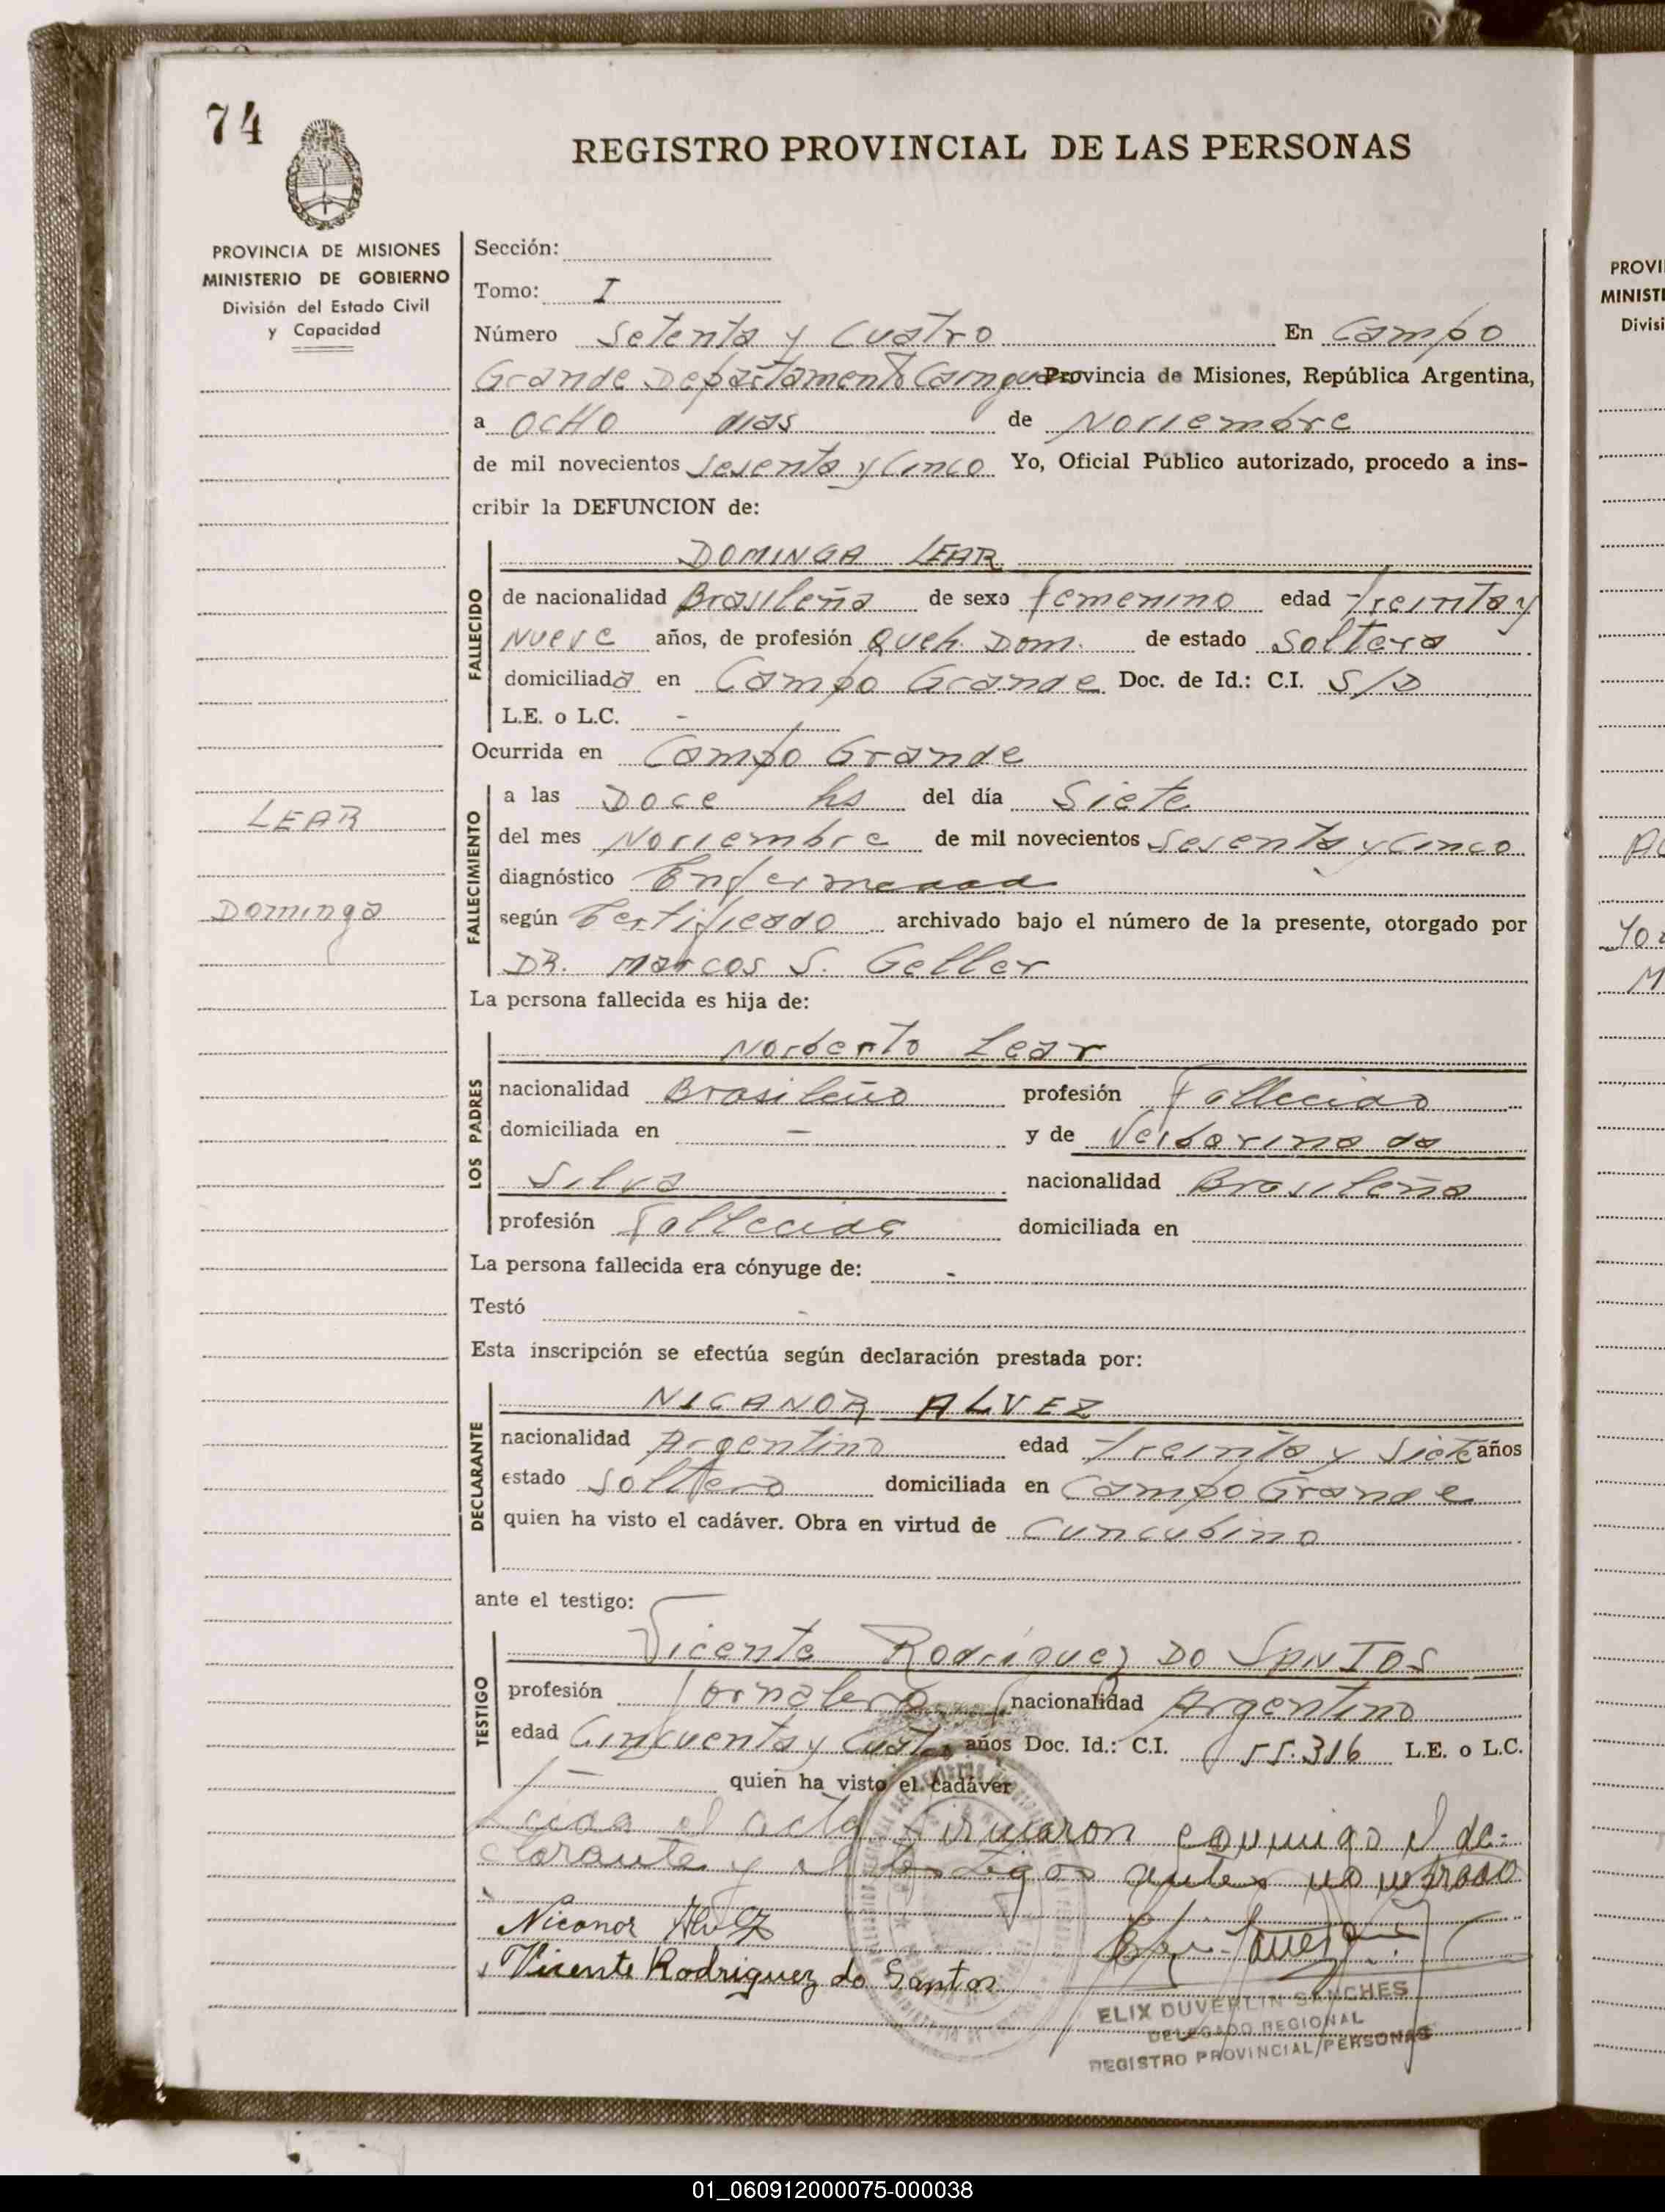 74
REGISTRO PROVINCIAL DE LAS PERSONAS
PROVINCIA DE MISIONES
MINISTERIO DE GOBIERNO
División del Estado Civil
y Capacidad
LEAR
Dominga
Sección:
Tomo: I
Número Setenta y Cuatro En Campo
Grande Departamento Cainguas Provincia de Misiones, República Argentina,
a OCHO dias de Noviembre
de mil novecientos Sesenta y Cinco Yo, Oficial Público autorizado, procedo a ins-
cribir la DEFUNCION de:
FALLECIDO
DOMINGA LEAR
de nacionalidad Brasileña de sexo femenino edad Treinta y
Nueve años, de profesión Queh. Dom. de estado Soltera
domiciliada en Campo Grande Doc. de Id.: C.I. S/D
L.E. o L.C. -
Ocurrida en Campo Grande
FALLECIMIENTO
a las Doce hs del día Siete
del mes Noviembre de mil novecientos Sesenta y Cinco
diagnóstico Enfermedad
según Certificado archivado bajo el número de la presente, otorgado por
DR. Marcos S. Geller
La persona fallecida es hija de:
LOS PADRES
Norberto Lear
nacionalidad Brasileño profesión Fallecido
domiciliada en - y de da
Silva nacionalidad Brasileña
profesión Fallecida domiciliada en
La persona fallecida era cónyuge de: -
Testó -
Esta inscripción se efectúa según declaración prestada por:
DECLARANTE
NICANOR ALVEZ
nacionalidad Argentino edad Treinta y Siete años
estado Soltero domiciliada en Campo Grande
quien ha visto el cadáver. Obra en virtud de Cuncubino
ante el testigo:
TESTIGO
Vicente Rodriguez DO SANTOS
profesión Jornalero nacionalidad Argentino
edad Cincuenta y Cuatro años Doc. Id.: C.I. 55.316 L.E. o L.C.
- quien ha visto el cadáver
Leida el acta firmaron conmigo el de-
clarante y el testigo antes nombrado
Nicanor Alvez
Vicente Rodriguez do Santos
ELIX DUVERLIN SANCHES
DELEGADO REGIONAL
REGISTRO PROVINCIAL PERSONAS
PROVI
MINISTE
Divisi
01_060912000075-000038